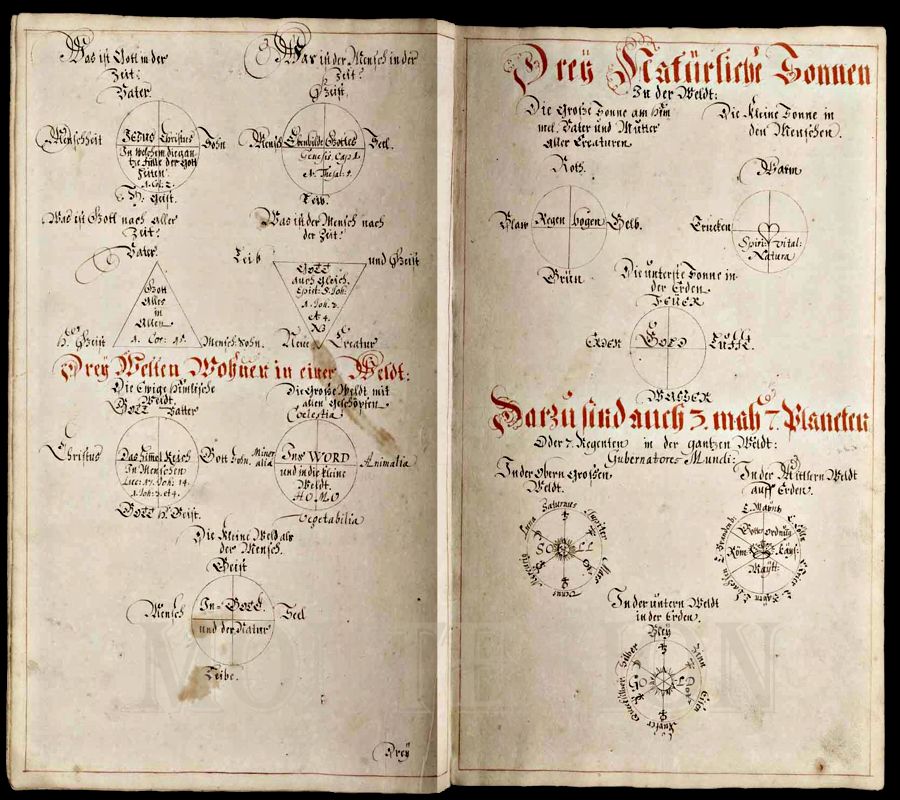 Was ist Gott in der
Zeit?
Vater.
Menschheit
JESUS Christus
Sohn
In welchem die gan-
tze Fülle der Gott
H: Geist.
War ist der Mensch in der
Zeit?
Geist.
Mensch
Ebenbilde Gottes
Seel.
Genesis. Cap 1.
Leib.
Was ist Gott nach aller
Zeit?
Vater
Gott
Alles
in
Allen
1. Cor: 15.
H. Geist
Mensch. Sohn.
Was ist der Mensch nach
der Zeit?
Leib
und Geist
GOTT
auch Gleich.
Epist: S. Joh:
1. Joh. 3.
et 4.
Neue
Creatur
Drey Welten Wohnen in einer Weldt:
Die Ewige himlische
Weldt.
GOTT Vatter
Christus
Das Himel Reich
In Menschen
Luc: 17. Joh: 14.
1. Joh: 3. et 4.
Gott Sohn.
GOTT H. Geist.
Die Große Weldt mit
allen Geschöpfen
Coelestia
Miner
alia
Ins WORD
und in die kleine
Weldt.
HOMO
Animalia
Vegetabilia
Die kleine Weld als
der Mensch.
Geist
Mensch
In GOTT
und der Natur
Seel
Leibe.
Drey
Drey Natürliche Sonnen
In der Weldt:
Die Große Sonne am Him
mel. Vater und Mutter
aller Creaturen
Roth.
Blaw
Regen bogen
Gelb.
Grün
Die kleine Sonne in
den Menschen.
Warm
Trucken
Spirit: vital:
Natura
Die unterste Sonne in
der Erden
FEUER
ERDEN
GOLD
LUFFT.
WASSER
Darzu sind auch 3. mahl 7. Planeten
Oder 7. Regenten in der gantzen Weldt:
Gubernatores Mundi:
In der Obern Großen
Weldt.
Saturnus
Jupiter
Mar
Venus
Mercurig
Luna
SOLL
In der Mittlern Weldt
auff Erden.
C. Mayntz
C. Cölln
C. Trier
C. Bayern
C. Sachsen
C. Brandenb:
Röm: Kays:
Maytt:
In der untern Weldt
in der Erden.
Bley
Zinn
Eisen
Kupfer
Quecksilber
Silber
GOLD
MO ON